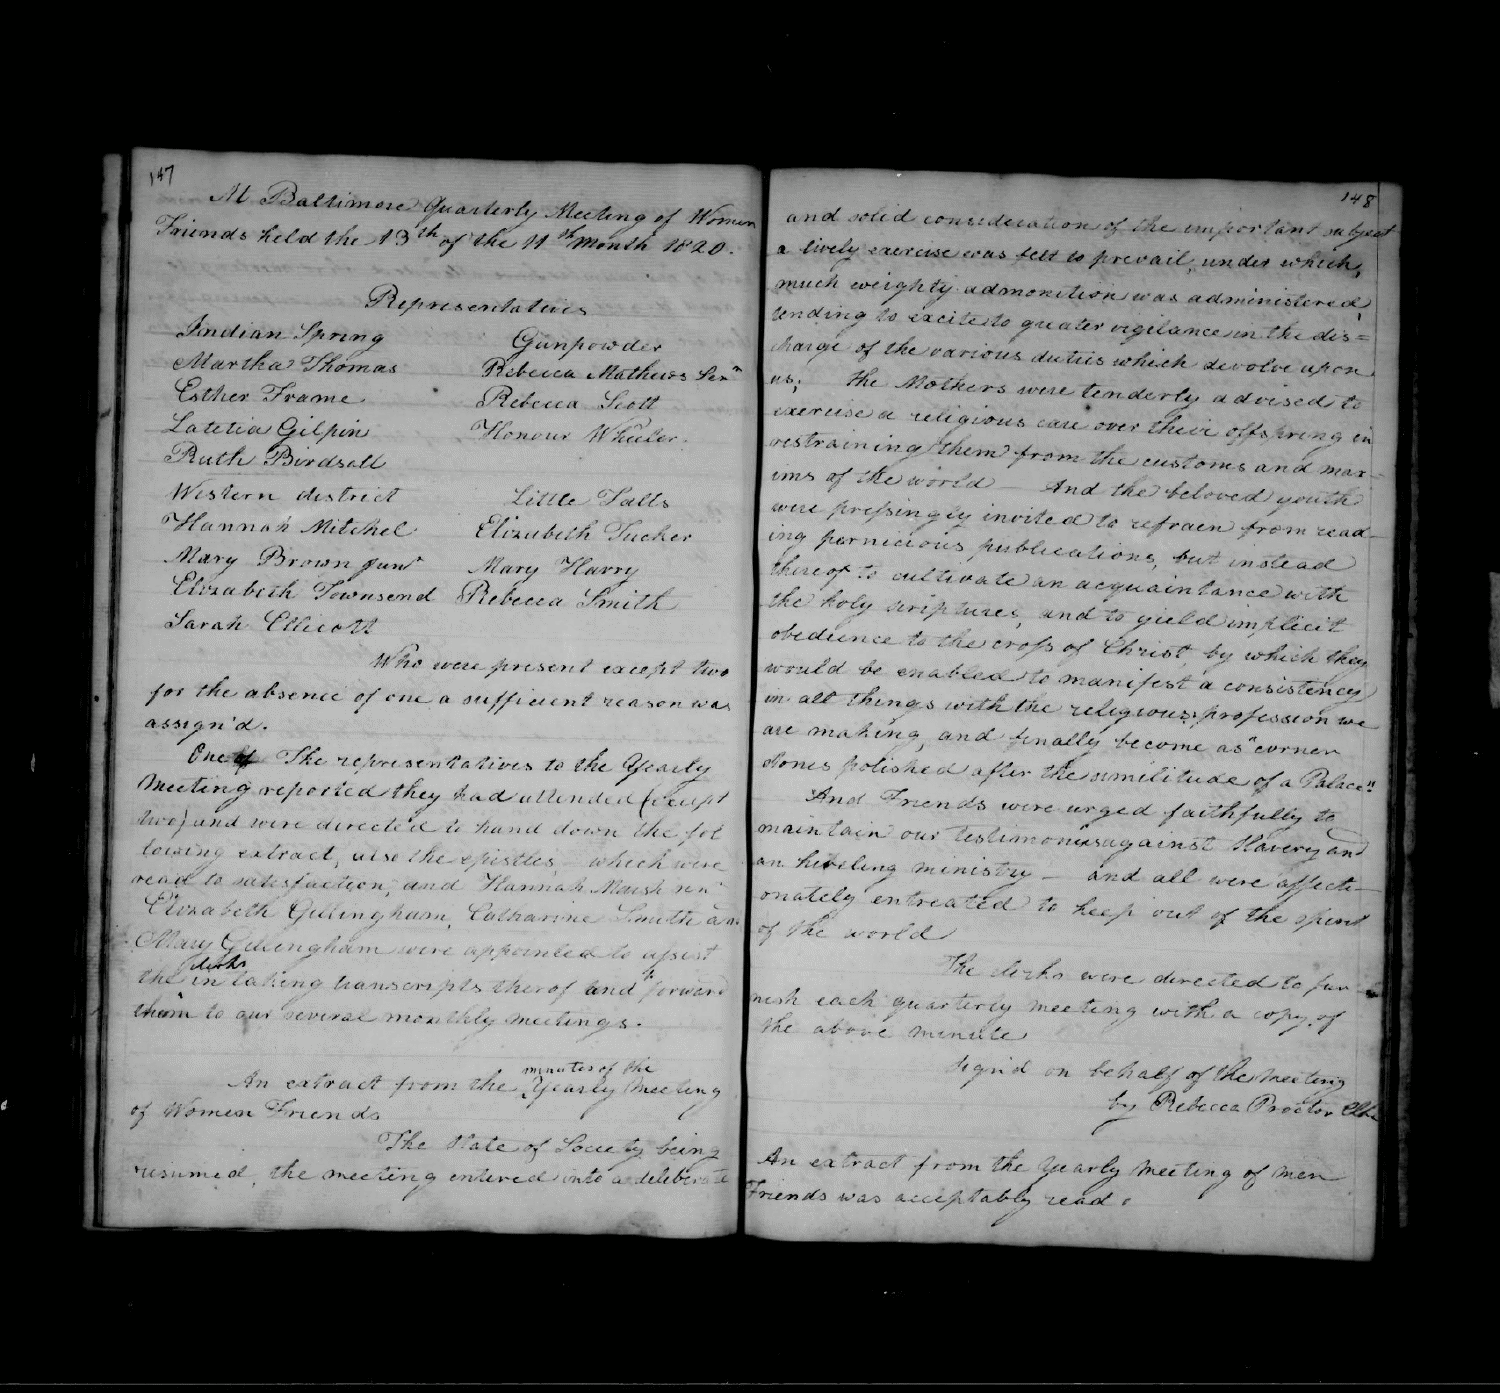 147
At Baltimore Quarterly Meeting of Women
Friends held the 13th of the 11th Month 1820.
Representatives
Indian Spring
Martha Thomas
Esther Frame
Latetia Gilpin
Ruth Birdsall
Gunpowder
Rebecca Mathews Senr
Rebecca Scott
Honour Wheeler.
Western district
Hannah Mitchel
Mary Brown junr
Elizabeth Townsend
Sarah Ellicott
Little Falls
Elizabeth Tucker
Mary Harry
Rebecca Smith
Who were present except two
for the absence of one a sufficient reason was
assign'd.
One of The representatives to the Yearly
Meeting reported they had attended (except
two) and were directed to hand down the fol
lowing extract, also the epistles, which were
read to satisfaction, and Hannah Marsh
Elizabeth Gillingham, Catharine Smith an
Mary Gillingham were appointed to assist
the clerks in taking transcripts therof and forward
them to our several monthly meetings.
An extract from the minutes of the Yearly Meeting
of Women Friends
The State of Society being
resumed, the meeting entered into a deliberate
148
and solid consideration of the important subject
a lively exercise was felt to prevail, under which,
much weighty admonition was administered,
tending to excite to greater vigilance in the dis=
charge of the various duties which devolve upon
us; the Mothers were tenderly advised to
exercise a religious care over their offspring in
restraining them from the customs and max-
ims of the world — And the beloved youth
were pressingly invited to refrain from read-
ing pernicious publications, but instead
thereof to cultivate an acquaintance with
the holy scriptures, and to yield implicit
obedience to the cross of Christ, by which they
would be enabled to manifest a consistency
in all things with the religious profession we
are making, and finally become as "corner
stones polished after the similitude of a Palace"
And Friends were urged faithfully to
maintain our testimonies against Slavery and
an hireling ministry — and all were affecti-
onately entreated to keep out of the spirit
of the world
The clerks were directed to fur-
nish each quarterly meeting with a copy of
the above minute
Sign'd on behalf of the Meeting
by Rebecca Proctor Clk
An extract from the Yearly Meeting of men
Friends was acceptably read.